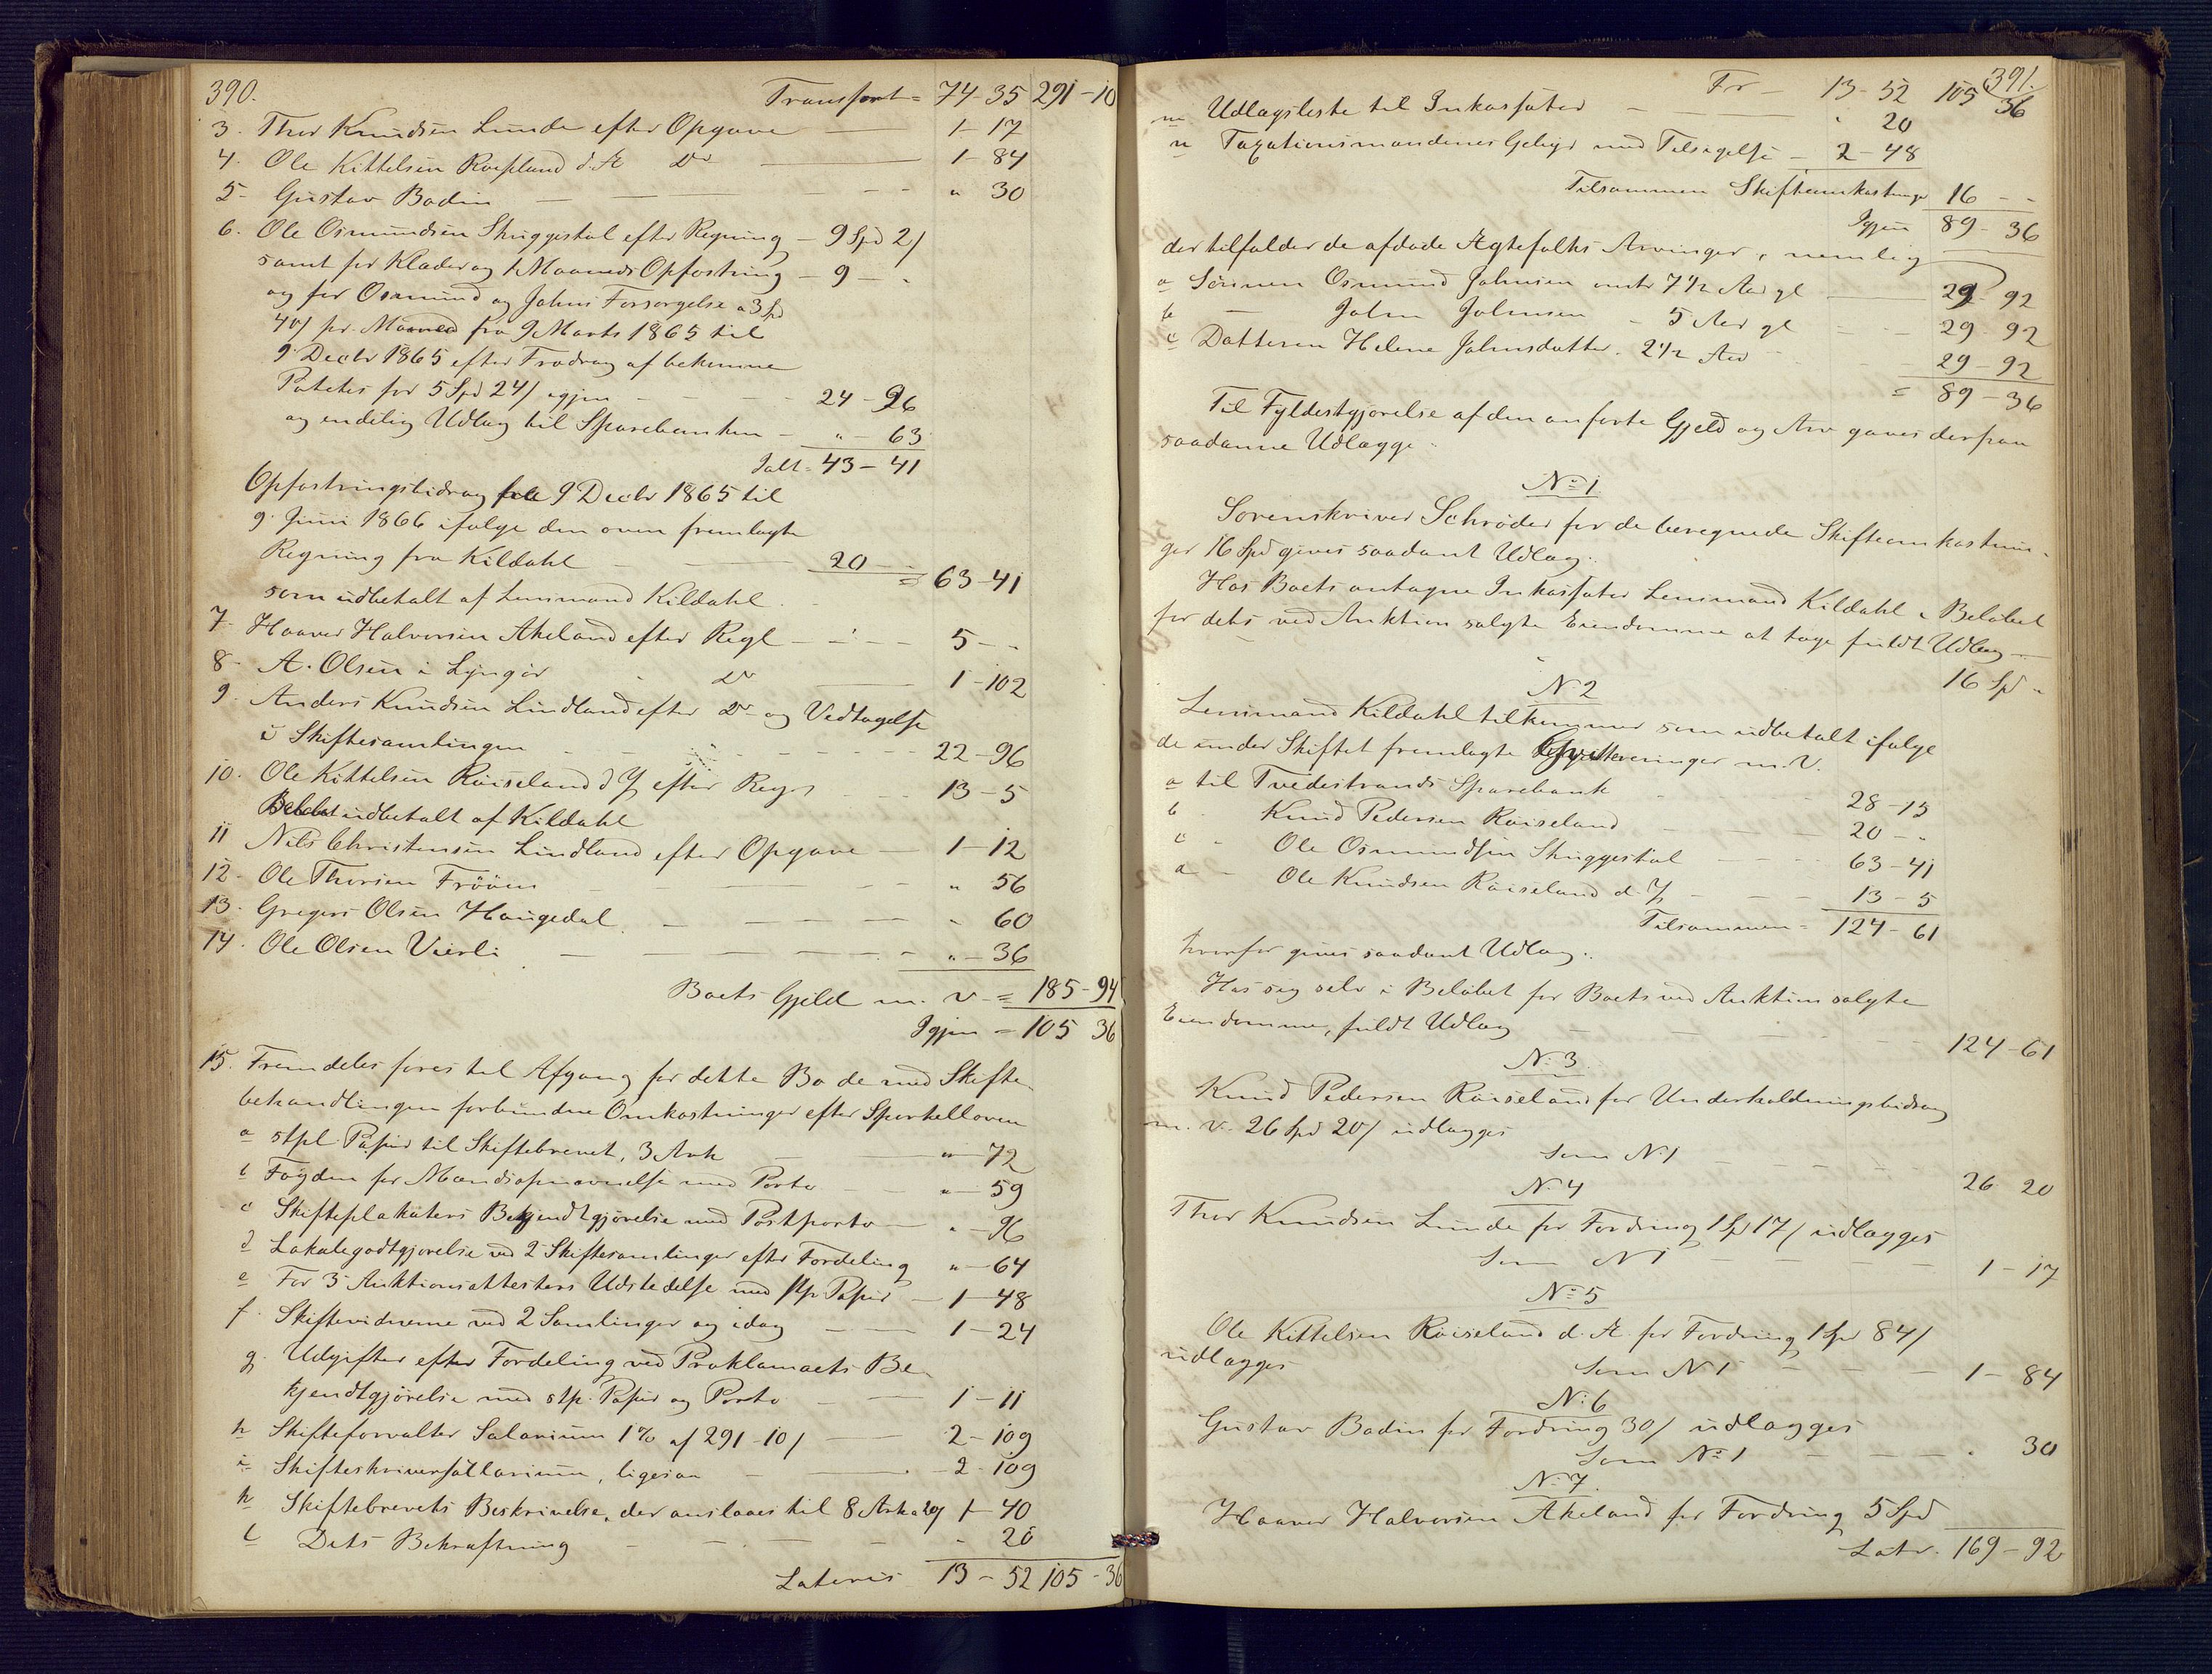 390.
Transport = 74-35 291-10
3. Thor Knudsen Lunde efter Opgave — 1-17
4. Ole Kittelsen Roiseland d. Æ Do — 1-84
5- Gustav Bodin — " 30
6. Ole Osmundsen Skuggestøl efter Regning - 9 Spd 2/
samt for Klæder og 1 Maaneds Opfostring - 9 - "
og for Osmund og Johns Forsørgelse a 3 Spd
40/ pr. Maaned fra 9 Marts 1865 til
9. Decbr 1865 efter Fradrag af bekomne
Poteter for 5 Spd 24/ igjen - 24-96
og endelig Udlæg til Sparebanken - "-63
Ialt = 43-41
Opfostringsbidrag fra 9 Decbr 1865 til
9. Juni 1866 ifølge den oven fremlagte
Regning fra Kildahl — 20 - -
= 63-41
som udbetalt af Lensmand Kildahl.
7- Haaver Halvorsen Akeland efter Regl - 5 - -
8- A. Olsen i Lyngør Do — 1-102
9. Anders Knudsen Lindland efter Do og Vedtagelse
i Skiftesamlingen - 22-96
10. Ole Kittelsen Röiseland d Y efter Regn - 13-5
Beløbet udbetalt af Kildahl
11 Nils Christensen Lindland efter Opgave — 1-12
12- Ole Thorsen Frööen — " 56
13- Gregers Olsen Haugedal. — " 60
14. Ole Olsen Vierli — "-36
Boets Gjeld m. v. = 185-94
Igjen = 105 36
15. Fremdeles føres til Afgang for dette Bo de med Skifte-
behandlingen forbundne Omkostninger efter Sportelloven
a stpl. Papir til Skiftebrevet, 3 Ark — "-72
b Fogden for Mændsopnævnelse med Porto — "-59
c Skifteplakaters Bekjendtgjørelse med Postporto — "-96
d Lokalegodtgjørelse ved 2 Skiftesamlinger efter Fordeling "-64
e For 3 Auktionsattesters Udstedelse med stp. Papir - 1-48
f. Skiftevidnerne ved 2 Samlinger og idag — 1-24
g. Udgifter efter Fordeling ved Proklamaets Be-
kjendtgjørelse med stp. Papir og Porto — 1-11
h Skifteforvalter Salarium 1% af 291-10/ — 2-109
i- Skifteskriversallarium, ligesaa — 2-109
k Skiftebrevets Beskrivelse, der anslaaes til 8 Ark a 20/ 1-40
l Dets Bekræftning - " 20
Lateris 13-52 105-36
391.
Fr - 13-52 105 36
m Udlægsliste til Inkassator — " 20
n Taxationsmændenes Gebyr med Tilsigelse - 2-48
Tilsammen Skifteomkostninger 16 - -
Igjen 89-36
der tilfalder de afdøde Ægtefolks Arvinger, nemlig
a Sönnen Osmund Johnsen omtr 7 1/2 Aar gl — 29 92
b — John Johnsen - 5 Aar gl - 29 92
c Datteren Helene Johnsdatter. 2 1/2 Aar - 29-92
= 89-36
Til Fyldestgjørelse af den anførte Gjeld og Arv gjøres derpaa
saadanne Udlægge:
No 1.
Sorenskriver Schrøder for de beregnede Skifteomkostnin-
ger 16 Spd gives saadant Udlæg:
Hos Boets antagne Inkassator Lensmand Kildahl i Beløbet
for dets ved Auktion solgte Eiendomme at tage fuldt Udlæg —
16 Spd "
N. 2
Lensmand Kildahl tilkommer som udbetalt ifølge
de under Skiftet fremlagte Qvitteringer m. V.
a til Tvedestrands Sparebank - 28-15
b " Knud Pedersen Roiseland - 20 - "
c " Ole Osmundsen Skuggestöl - 63-41
d - Ole Knudsen Röiseland d. Y - 13-5
Tilsammen = 124-61
hvorfor gives saadant Udlæg:
Hos sig selv i Beløbet for Boets ved Auktion solgte
Eiendomme, fuldt Udlæg — 124-61
N. 3.
Knud Pedersen Röiseland for Underholdningsbidrag
m. v. 26 Spd 20/ udlægges
Som N 1 — 26 20
N. 4
Thor Knudsen Lunde for Fordring 1 Spd 17/ udlægges
Som N 1 — 1-17
No 5
Ole Kittelsen Röiseland d. Æ. for Fordring 1 Spd 84/
udlægges
Som N 1 — 1-84
N. 6
Gustav Bodin for Fordring 30/ udlægges
Som No 1 — " 30
N. 7.
Haaver Halvorsen Akeland for Fordring 5 Spd
Latr. 169-92